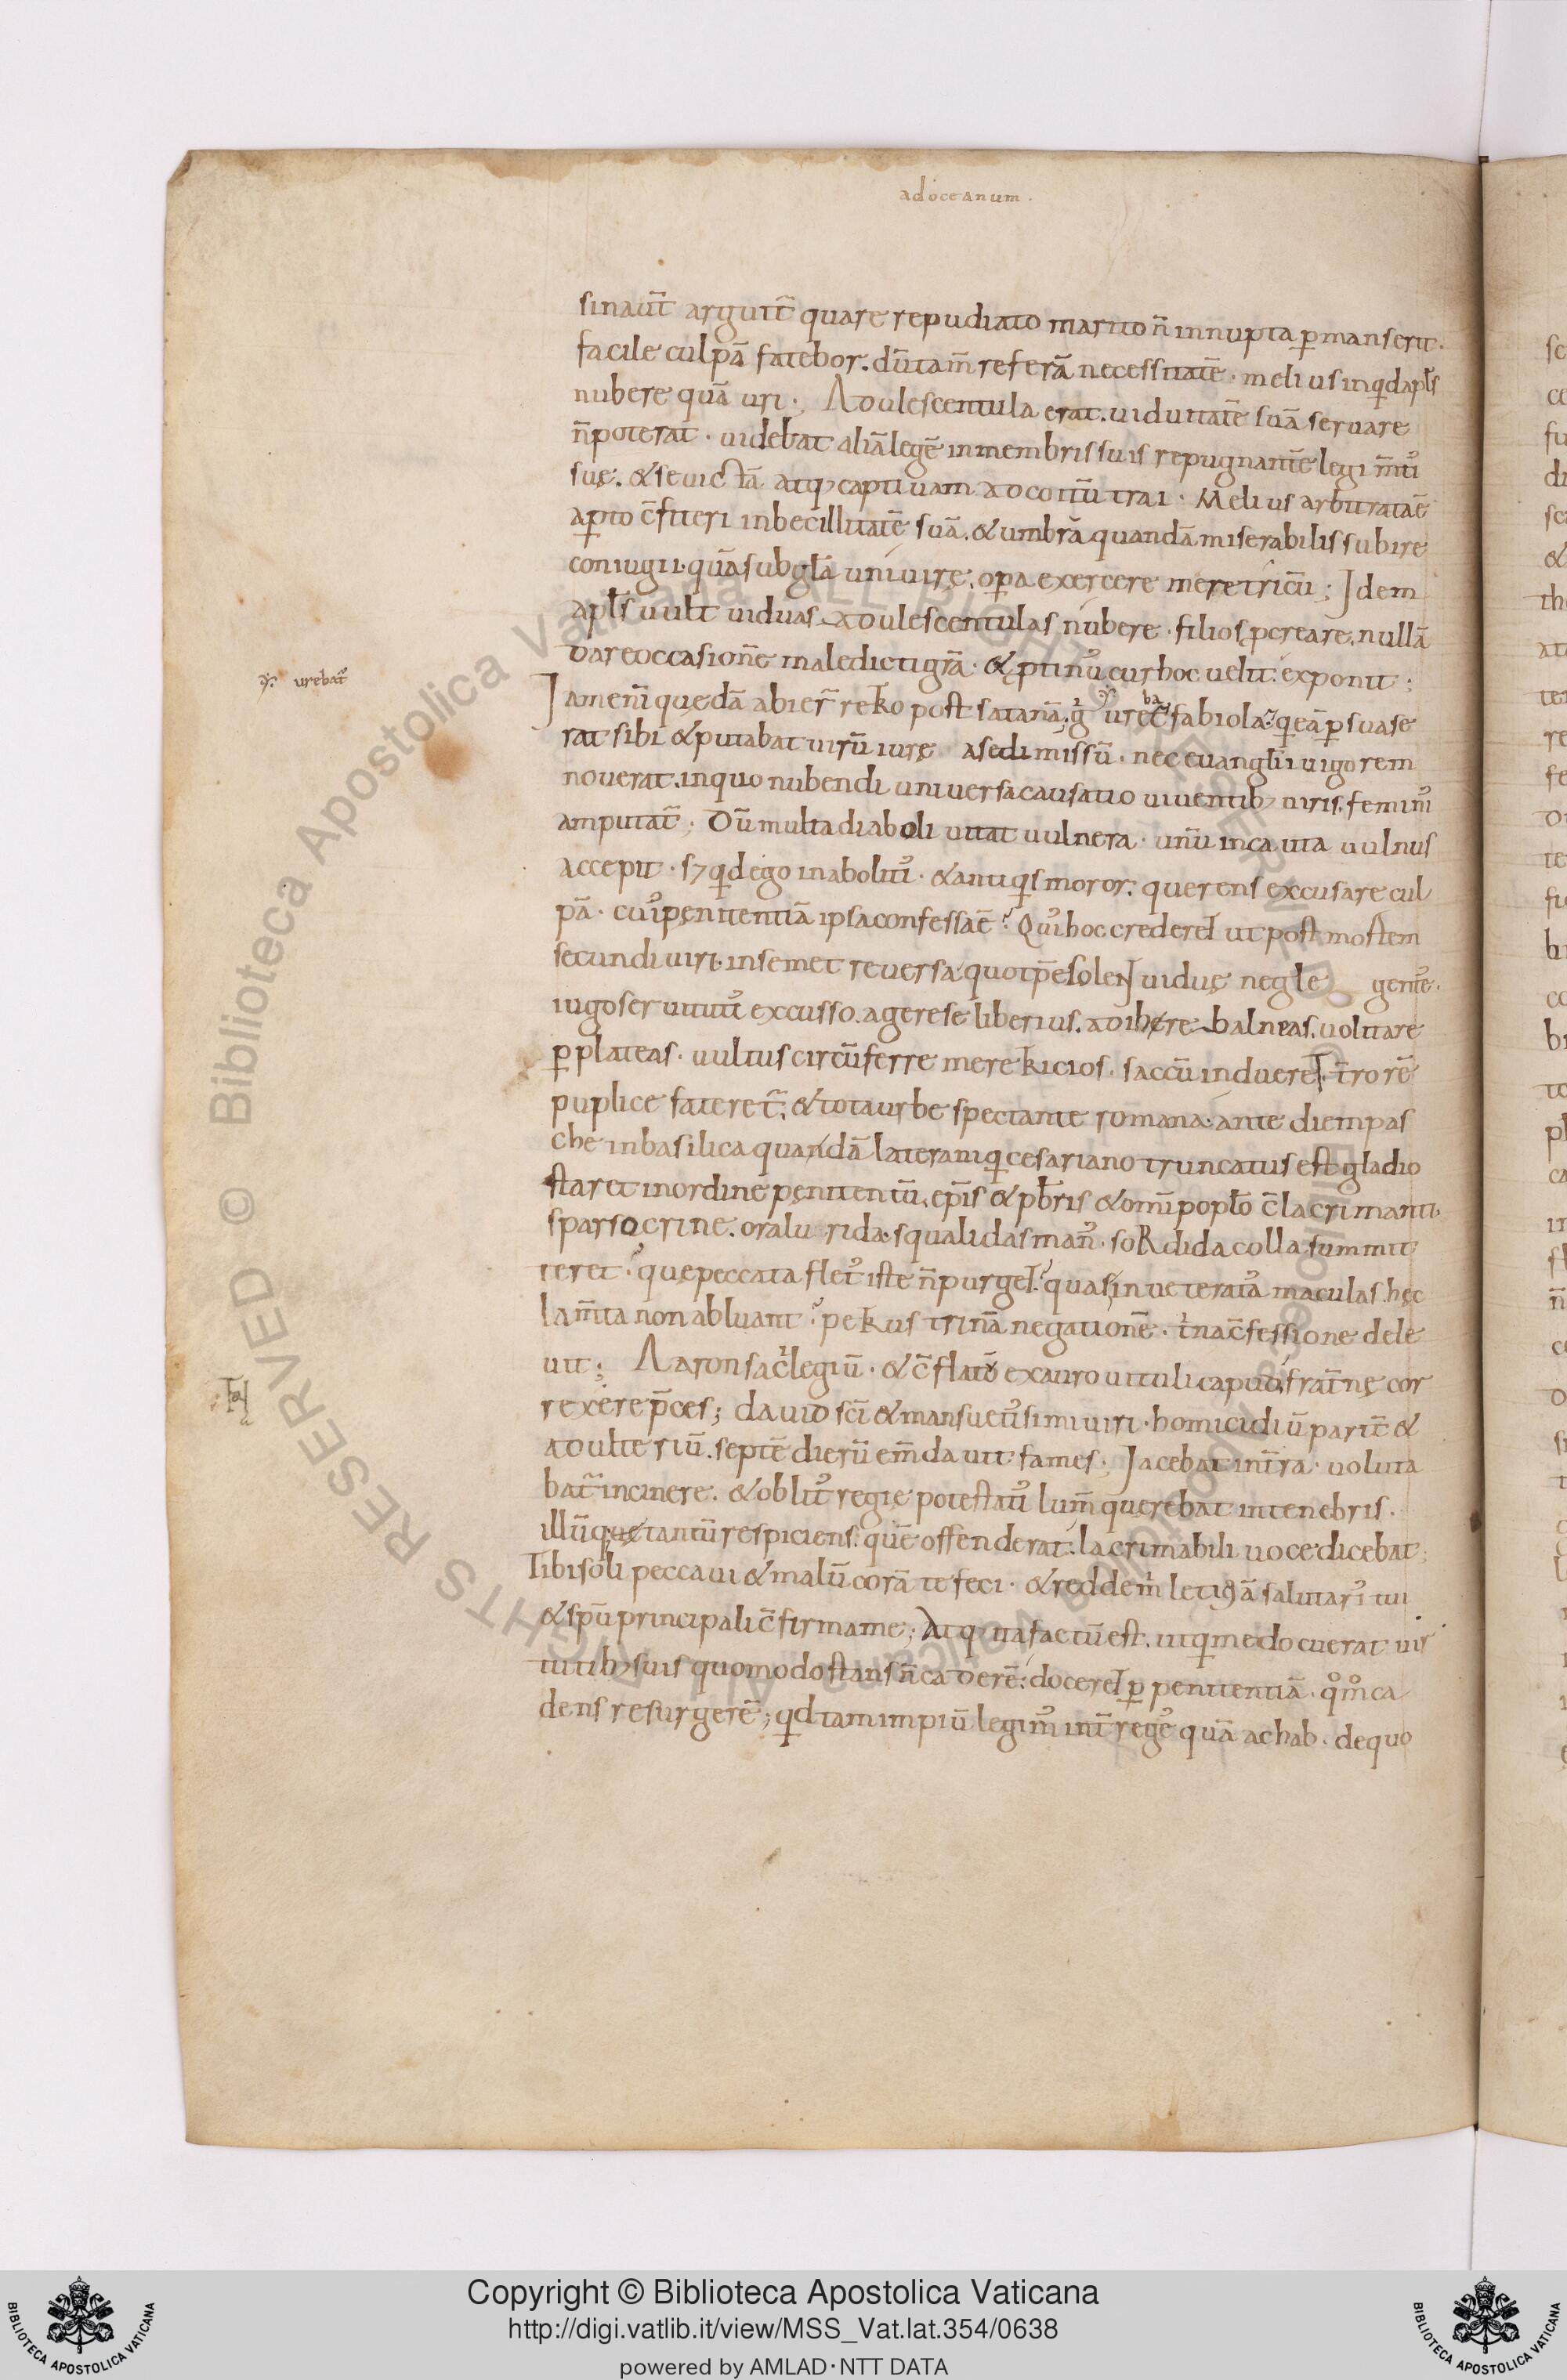 adoceanum.
sinaut̄ arguit̄ quare repudiato marito n̄ innupta ꝑmanserit.
facile culpā fatebor. dūtam̄ referā necessitatē. melius inqͥd apl̄s
nubere quā uri; Adulescentula erat. uiduitatē suā seruare
n̄poterat. uidebat aliā legē inmembris suis repugnantē legi m̄tis
suę. & se uictā atq; captiuam adcoitū trai. Melius arbitrataē
aꝑto c̄fiteri inbecillitatē suā. & umbrā quandā miserabilis subire
coniugii. quā sub gl̄a uniuirę. oꝑa exercere meretricū; Idem
apl̄s uult uiduas adulescentulas nubere. filios ꝓcreare. nullā
dare occasionē maledicti gr̄a. & ꝓtinus cur hoc uelit exponit;
Iam eni quędā abier̄ retro post satanā. gͥ ureba fabiola qͥ eā ꝑsuase
urebat̄
rat sibi & putabat uirū iure a se dimissū. nec euanglii uigorem
nouerat. inquo nubendi uniuersa causatio uiuentib; uiris. feminis
amputat̄; Dū multa diaboli uitat uulnera. unū incauta uulnus
accepit. s; qͥd ego inabolitis. & antiqͥs moror. querens excusare cul
pā. cuius pęnitentiā ipsa confessaē? Quis hoc crederet ut post mortem
secundi uiri. insemet reuersa. quo tp̄e solent uiduę neglegentes.
iugo seruitutis excusso. agere se liberius. adihere balneas. uolitare
ꝑ plateas. uultus circūferre meretricios. saccū induere. t̄rorē
puplice fateret̄. & tota urbe spectante romana. ante diem pas
che inbasilica quandā laterani qͥ cesariano truncatus est gladio
staret inordine pęnitentū. ep̄is & pb̄ris & omi popl̄o c̄lacrimanti.
sparso crine. ora lurida. squalidas man̄. sordida colla summit
teret? quę peccata fletus iste n̄ purget? quas inueteratas maculas hęc
lam̄ta non abluant? petrus trinā negationē. tͥna c̄fessione dele
uit; Aaron sacͥlegiū. & c̄flatū exauro uituli caput. frat̄nę cor
rexere p̄ces; dauid sc̄i & mansuetissimi uiri. homicidiū parit̄ &
adulteriū. septē dierū em̄dauit fames. Iacebat int̄ra. uoluta
bat̄ incinere. & oblitus regię potestatis lum̄ querebat intenebris.
illūque tantū respiciens. quē offenderat. lacrimabili uoce dicebat;
Tibi soli peccaui & malū corā te feci. & redde m̄ letitiā salutaris tui
& spū principali c̄firma me; Atq; ita factū est. ut qͥ me docuerat uir
tutib; suis quomodo stans n̄ caderē. doceret ꝑ penitentiā. qͦm̊ ca
dens resurgerē; qͥd tam impiū legimus int̄ reges quā achab. de quo
Copyright © Biblioteca Apostolica Vaticana
http://digi.vatlib.it/view/MSS_Vat.lat.354/0638
powered by AMLAD·NTT DATA